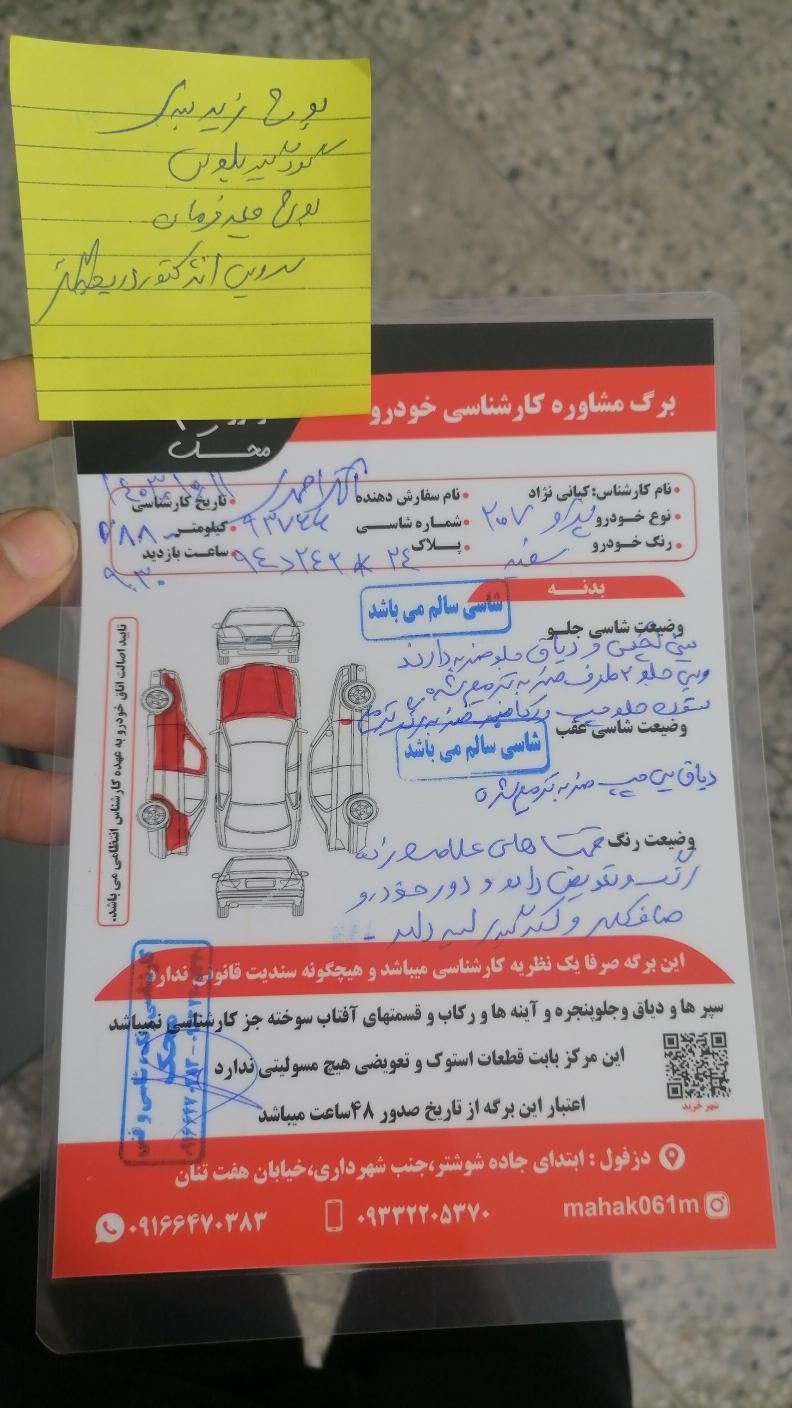 بوش زیربندی
گردگیر پلوس
بوش میل فرمان
سرویس انژکتور دریچه گاز
برگ مشاوره کارشناسی خودرو
محک
نام کارشناس: کیانی نژاد
نام سفارش دهنده احمدی
تاریخ کارشناسی
نوع خودرو پژو ۲۰۷
شماره شاسی
کیلومتر
رنگ خودرو سفید
پلاک
ساعت بازدید ۹:۳۰
بدنه
وضعیت شاسی جلو
شاسی سالم می باشد
سینی فنی و دیاق جلو ضربه دارند
جلو ۲ طرف ضربه ترمیم شده
ستون جلو چپ و رکاب ضربه
وضعیت شاسی عقب
شاسی سالم می باشد
دیاق چپ ضربه ترمیم شده
وضعیت رنگ قسمت های علامت زده
رنگ و تعویض دارد و دور خودرو
صافکاری و لکه گیری لیسه دارد
تایید اصالت اتاق خودرو به عهده کارشناس انتظامی می باشد.
این برگه صرفا یک نظریه کارشناسی میباشد و هیچگونه سندیت قانونی ندارد
سپر ها و دیاق وجلوپنجره و آینه ها و رکاب و قسمتهای آفتاب سوخته جز کارشناسی نمیباشد
این مرکز بابت قطعات استوک و تعویضی هیچ مسولیتی ندارد
اعتبار این برگه از تاریخ صدور ۴۸ساعت میباشد
محک
دزفول : ابتدای جاده شوشتر،جنب شهرداری،خیابان هفت تنان
mahak061m
۰۹۳۳۲۲۰۵۳۷۰
۰۹۱۶۶۴۷۰۳۸۳